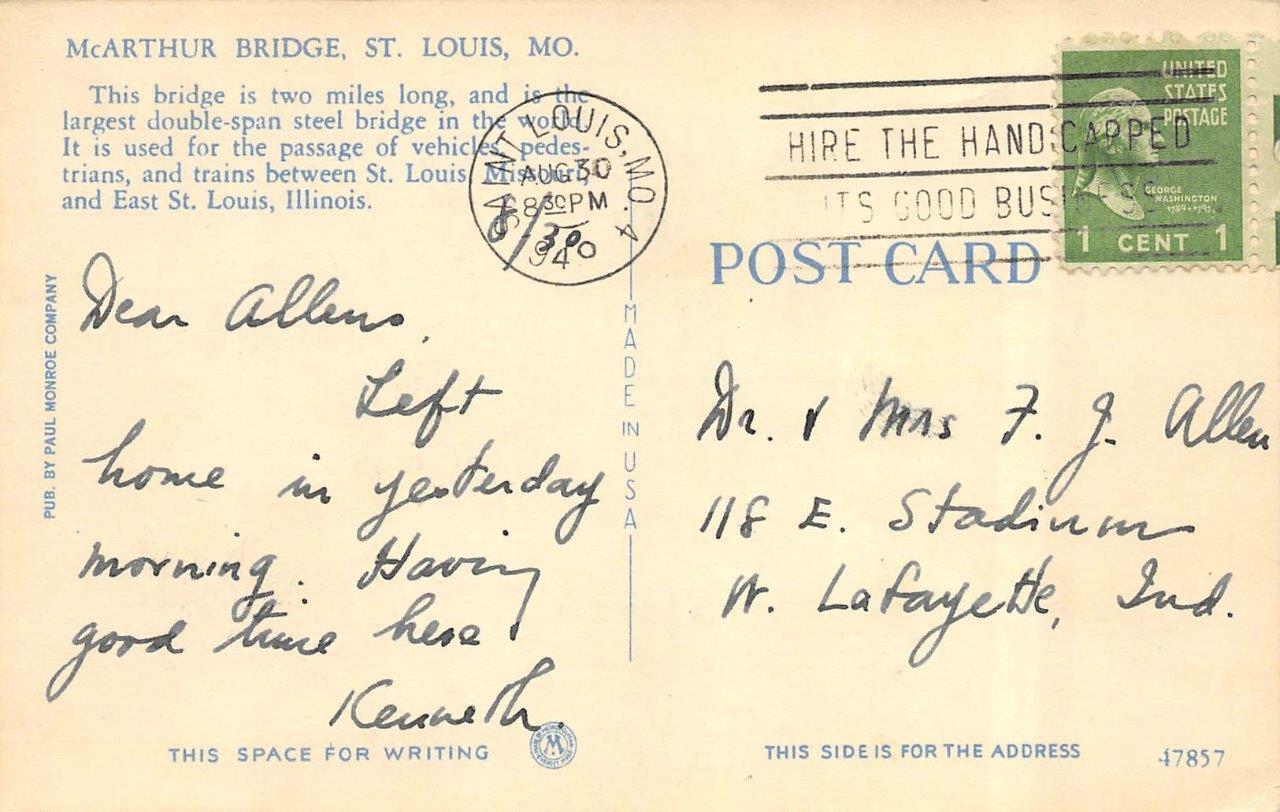 McARTHUR BRIDGE, ST. LOUIS, MO.
This bridge is two miles long, and is the
largest double-span steel bridge in the world.
It is used for the passage of vehicles, pedes-
trians, and trains between St. Louis, Missouri,
and East St. Louis, Illinois.
SAINT LOUIS, MO. 4
AUG 30
8 30 PM
HIRE THE HANDICAPPED
ITS GOOD BUSINESS
UNITED
STATES
POSTAGE
GEORGE
WASHINGTON
1789-1797
1 CENT 1
POST CARD
PUB. BY PAUL MONROE COMPANY
MADE IN USA
Dear Allens,
Left
home in yesterday
morning. Having
good time here.
Kenneth.
Dr. & Mrs F. J. Allen
118 E. Stadium
W. Lafayette, Ind.
THIS SPACE FOR WRITING
M
THIS SIDE IS FOR THE ADDRESS
47857